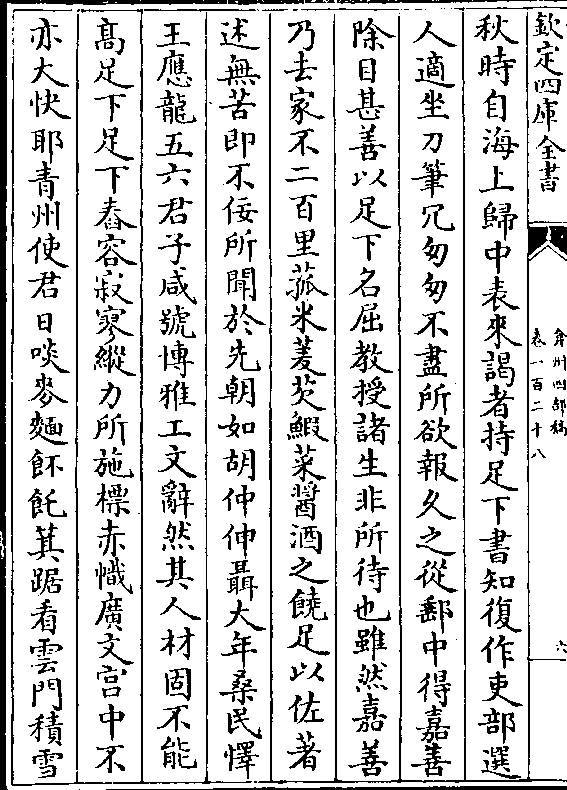 欽定四庫全書
弇州四部稿
卷一百二十八
六
秋時自海上歸中表來謁者持足下書知復作吏部選
人適坐刀筆冗匆匆不盡所欲報久之從郵中得嘉善
除目甚善以足下名屈教授諸生非所待也雖然嘉善
乃去家不二百里菰米菱芡鰕菜醬酒之饒足以佐著
述無苦即不佞所聞於先朝如胡仲仲聶大年桑民懌
王應龍五六君子咸號博雅工文辭然其人材固不能
髙足下足下舂容寂寥縱力所施標赤幟廣文宫中不
亦大快耶青州使君日啖麥麵飥箕踞看雲門積雪